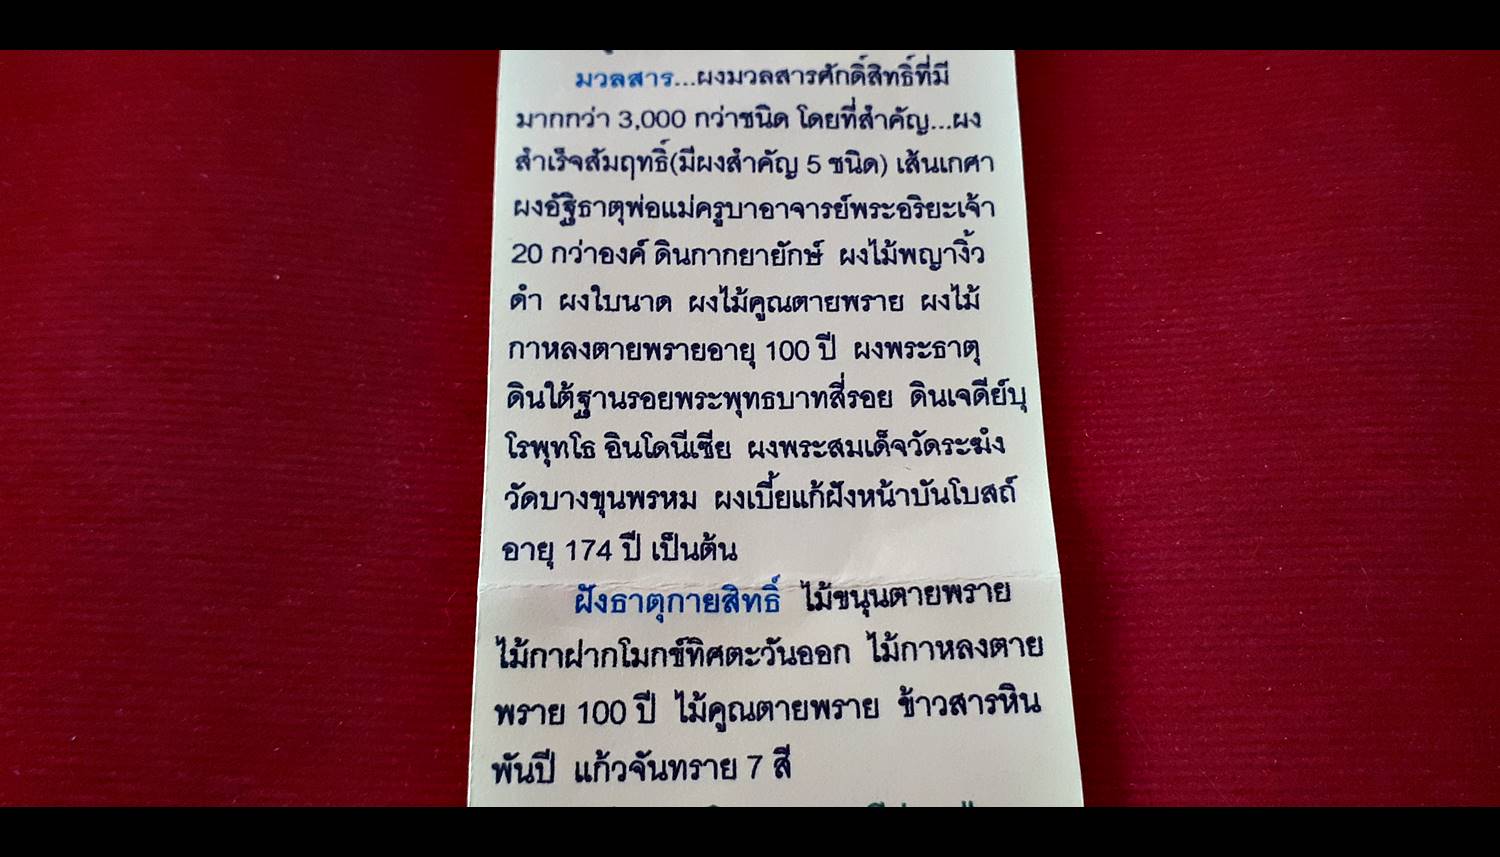 มวลสาร...ผงมวลสารศักดิ์สิทธิ์ที่มี
มากกว่า 3,000 กว่าชนิด โดยที่สำคัญ...ผง
สำเร็จสัมฤทธิ์(มีผงสำคัญ 5 ชนิด) เส้นเกศา
ผงอัฐิธาตุพ่อแม่ครูบาอาจารย์พระอริยะเจ้า
20 กว่าองค์ ดินกากยายักษ์ ผงไม้พญางิ้ว
ดำ ผงใบนาด ผงไม้คูณตายพราย ผงไม้
กาหลงตายพรายอายุ 100 ปี ผงพระธาตุ
ดินใต้ฐานรอยพระพุทธบาทสี่รอย ดินเจดีย์บุ
โรพุทโธ อินโดนีเซีย ผงพระสมเด็จวัดระฆัง
วัดบางขุนพรหม ผงเบี้ยแก้ฝังหน้าบันโบสถ์
อายุ 174 ปี เป็นต้น
ฝังธาตุกายสิทธิ์ ไม้ขนุนตายพราย
ไม้กาฝากโมกข์ทิศตะวันออก ไม้กาหลงตาย
พราย 100 ปี ไม้คูณตายพราย ข้าวสารหิน
พันปี แก้วจันทราย 7 สี